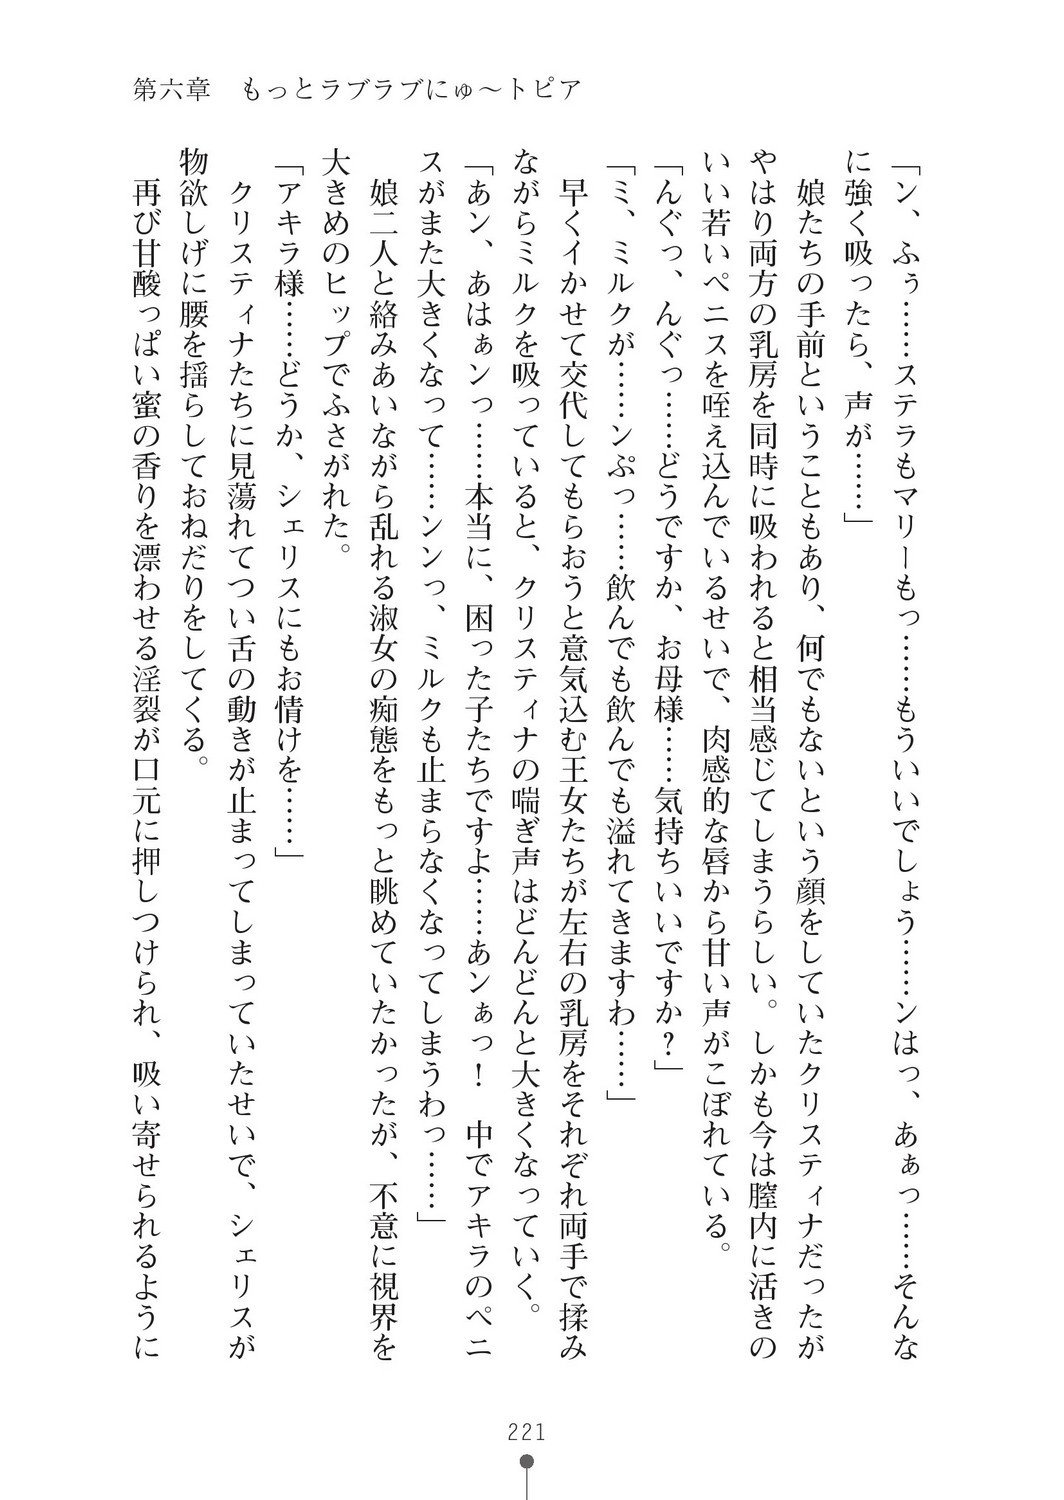 第六章　もっとラブラブにゅ～トピア
「ン、ふぅ……ステラもマリーもっ……もういいでしょう……ンはっ、あぁっ……そんな
に強く吸ったら、声が……」
　娘たちの手前ということもあり、何でもないという顔をしていたクリスティナだったが
やはり両方の乳房を同時に吸われると相当感じてしまうらしい。しかも今は膣内に活きの
いい若いペニスを咥え込んでいるせいで、肉感的な唇から甘い声がこぼれている。
「んぐっ、んぐっ……どうですか、お母様……気持ちいいですか？」
「ミ、ミルクが……ンぷっ……飲んでも飲んでも溢れてきますわ……」
　早くイかせて交代してもらおうと意気込む王女たちが左右の乳房をそれぞれ両手で揉み
ながらミルクを吸っていると、クリスティナの喘ぎ声はどんどんと大きくなっていく。
「あン、あはぁンっ……本当に、困った子たちですよ……あンぁっ！　中でアキラのペニ
スがまた大きくなって……ンンっ、ミルクも止まらなくなってしまうわっ……」
　娘二人と絡みあいながら乱れる淑女の痴態をもっと眺めていたかったが、不意に視界を
大きめのヒップでふさがれた。
「アキラ様……どうか、シェリスにもお情けを……」
　クリスティナたちに見蕩れてつい舌の動きが止まってしまっていたせいで、シェリスが
物欲しげに腰を揺らしておねだりをしてくる。
　再び甘酸っぱい蜜の香りを漂わせる淫裂が口元に押しつけられ、吸い寄せられるように
221